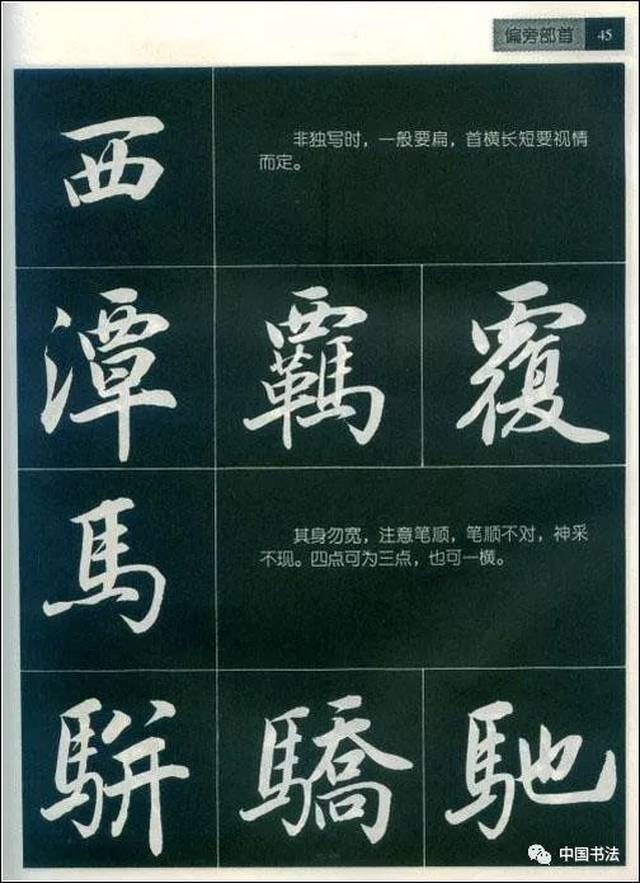 偏旁部首 45
西
非独写时，一般要扁，首横长短要视情
而定。
潭 羈 覆
馬
其身勿宽，注意笔顺，笔顺不对，神采
不现。四点可为三点，也可一横。
駢 驕 馳
中国书法